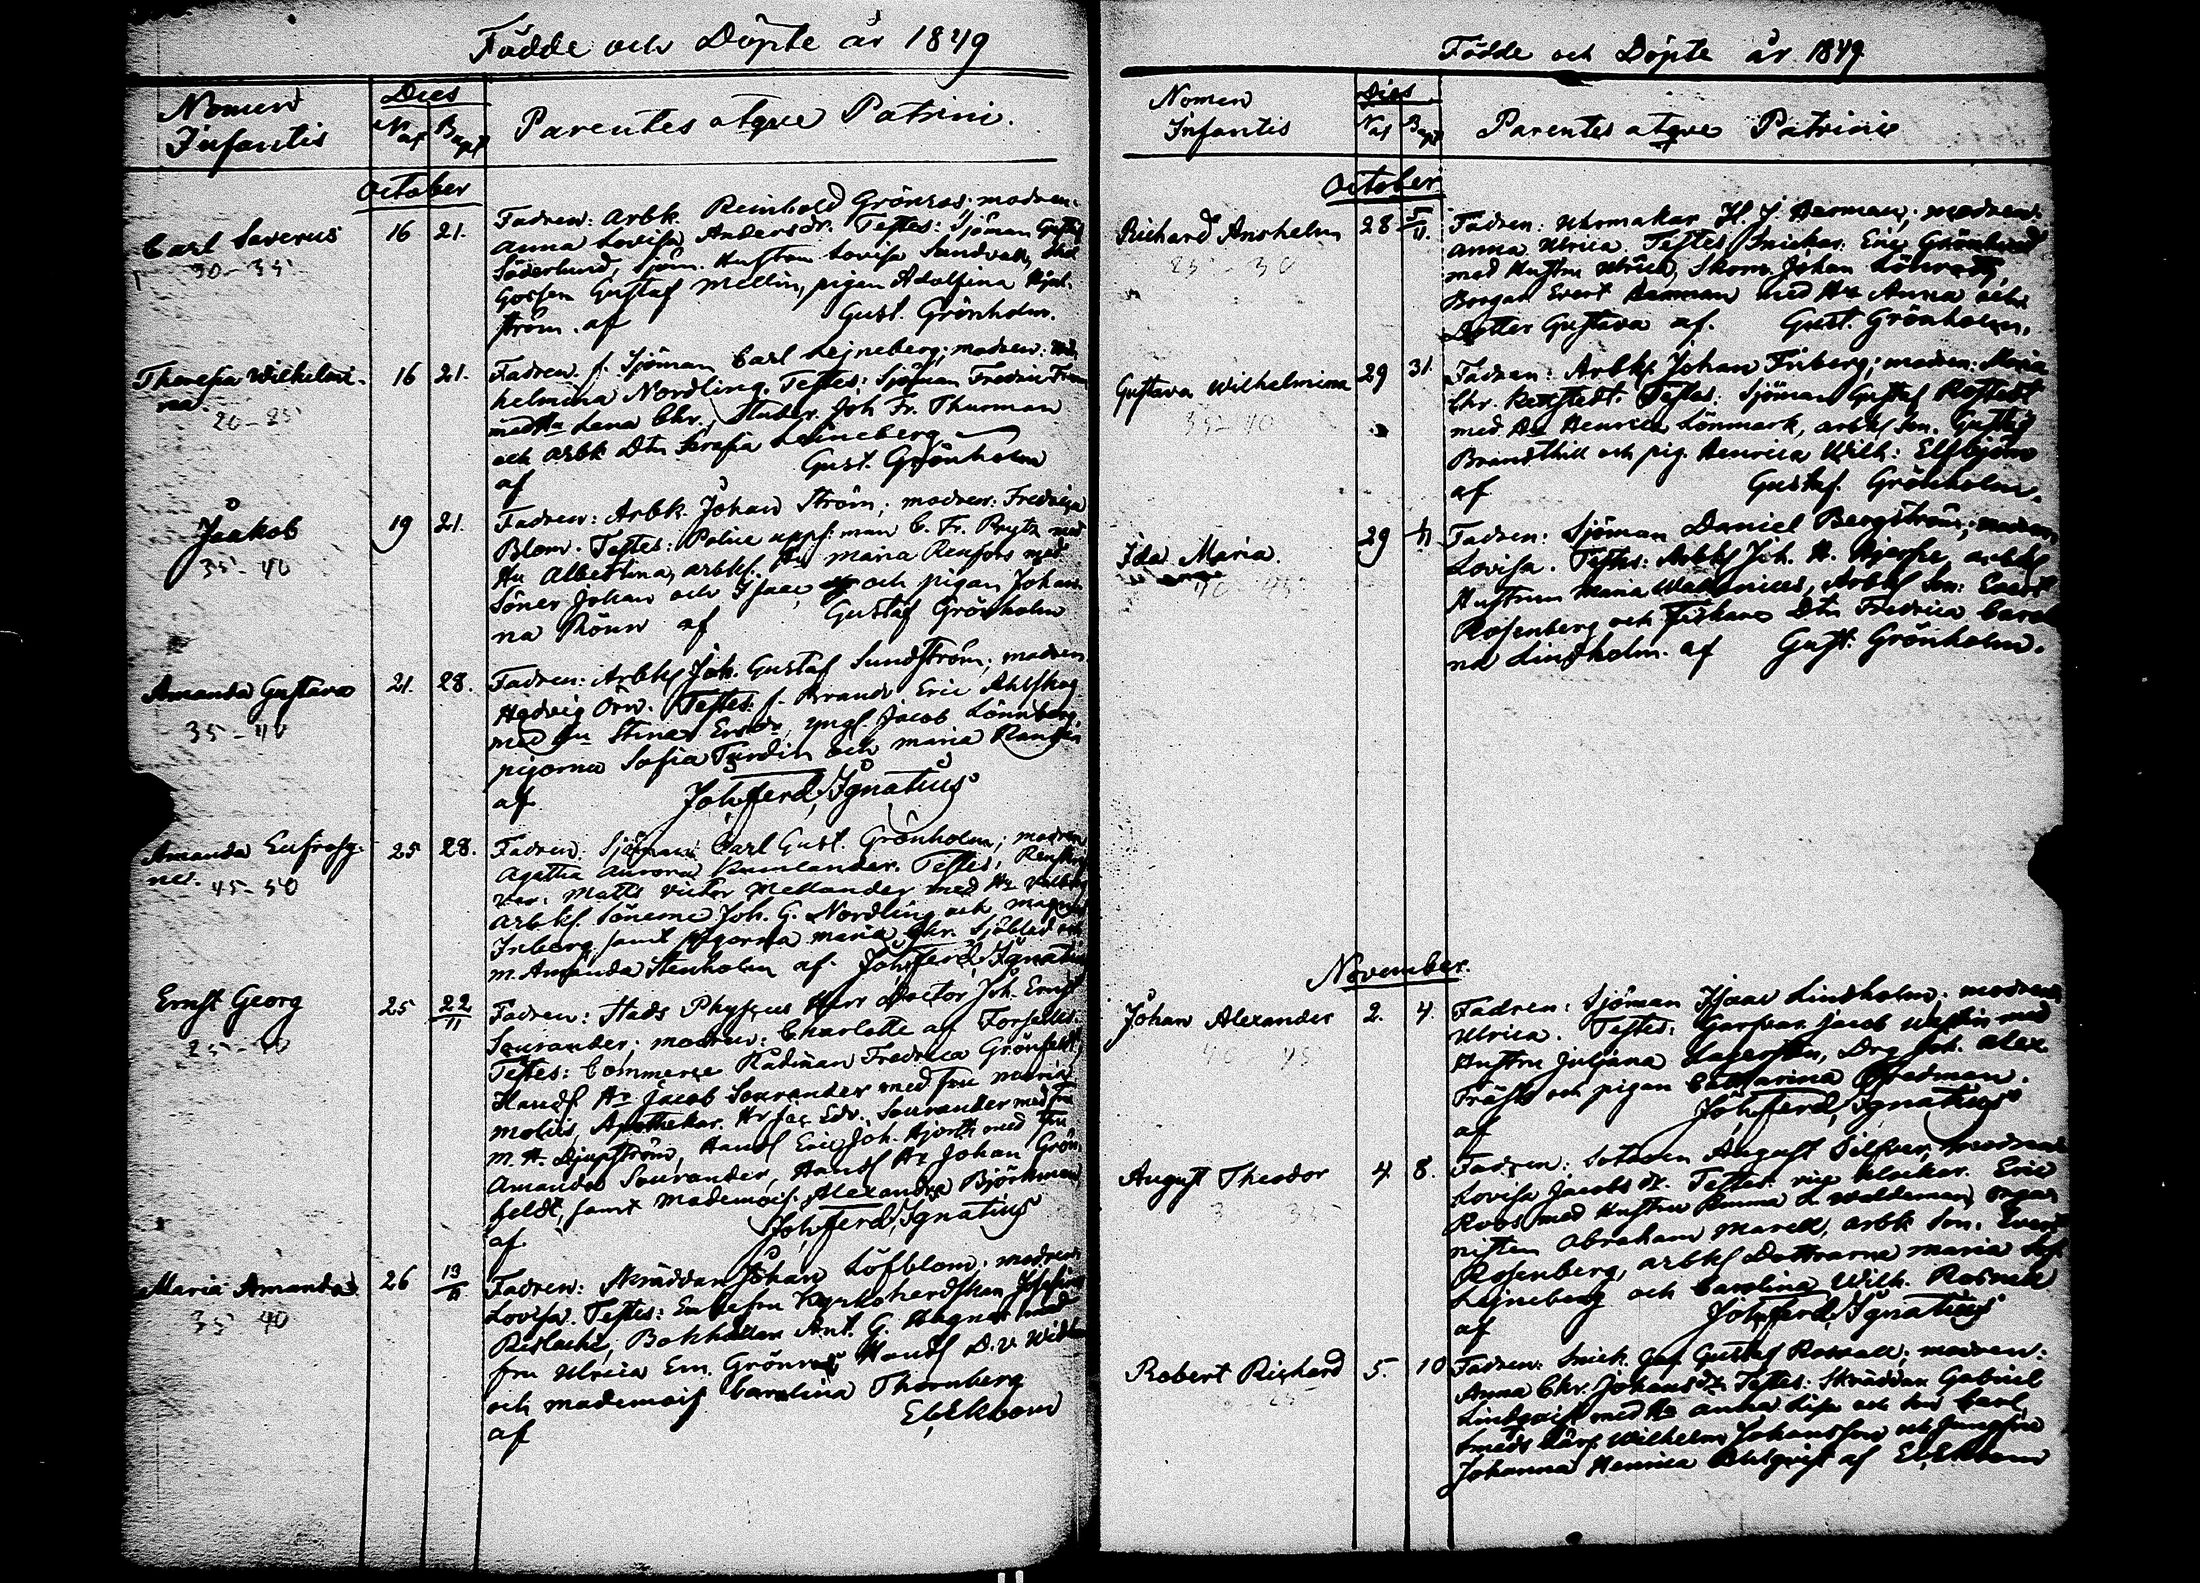 Födde och Döpte år 1849
Nomen Infantis
Dies
Nat Bapt
Parentes atque Patrini.
October
Carl Severus
30-35
16 21.
Fadren: Arbk. Reinhold Grönros; modren:
Anna Lovisa Andersdr. Testes: Sjöman Gustaf
Söderlund, Sjöm. Hustrun Lovisa Sundvall,
Gossen Gustaf Mellin, pigan Adolfina Hjel-
ström. af Gust. Grönholm.
Theresia Wilhelmi-
na.
20-25
16 21.
Fadren f. Sjöman Carl Lejneberg; modren: Wil-
helmina Nordling. Testes: Sjöman Fredric
med Hu Lena Chr., Studer. Joh Fr. Thurman
och arbk Dtn Serafia Leineberg
af Gust. Grönholm
Jaakob
35-40
19 21.
Fadren: Arbk. Johan Ström; modren: Fredrica
Blom. Testes: Police uppf. man C. Fr. Brytz med
Hu Albertina, arbkf. Hu Maria Renfors med
Söner Johan och Isaac och pigan Johan-
na Rönn af Gustaf Grönholm
Amanda Gustava
35-40
21. 28.
Fadren: Arbkf Joh. Gustaf Sundström; modren
Hedvig Örn. Testes: f. Brandv Eric Ahlskog
med Hu Stina Ersdr, yngl. Jacob Lönnberg,
pigorna Sofia Turdin och Maria Rangen
af Joh. Ferd. Ignatius
Amanda Eufrosy-
ne.
45-50
25 28.
Fadren: Sjöman Carl Gust. Grönholm; modren
Agatha Aurora Rumlander. Testes:
Matts Victor Mellander med Hu
Arbkf. Sönerne Joh. G. Nordling och Magnus
Friberg, samt pigorna Maria Chr. Sjöblad och
M. Amanda Stenholm af. Joh. Ferd. Ignatius
Ernst Georg
25 22/11
Fadren: Stads Physicus Herr Doctor Joh. Ernst
Sourander; modren: Charlotte af Forselles.
Testes: Commerce Rådinan Fredrica Grönfeldt,
Handl Hr Jacob Sourander med fru Maria
Molis, Apothekar. Hr Jac Edv. Sourander med fru
M. H. Djupström, Handl Eric Joh. Hjorth med fru
Amanda Sourander, Handl Hr Johan Grön-
feldt, samt Mademois. Alexandra Björkman
af Joh. Ferd. Ignatius
Maria Amanda
35 40
26 13/11
Fadren: Skräddar Johan Löfblom; modren
Lovisa. Testes: Enkefru Kyrkoherdskan Josefina
Rislachi, Bokhållar Ant. G. Wagner med
fru Ulrica Em. Grönros Handl D. v.
och mademois Carolina Thornberg
af E. Ekbom
Födde och Döpte år 1849
Nomen Infantis
Dies
Nat Bapt
Parentes atque Patrini
October
Richard Anshelm
25-30
28 5/11.
Fadren: Uhrmakar H. J. Berman; modren:
Anna Ulrica. Testes: Snickar. Eric Grönlund
med Hustru Ulrica, Skom. Johan Lönroth,
Borgar Evert Berman med Hu Anna och
Dotter Gustava af. Gust. Grönholm.
Gustava Wilhelmina
35-40
29 31.
Fadren: Arbkf Johan Friberg; modren: Maria
Chr. Rostedt. Testes: Sjöman Gustaf Rostedt
med Hu Henrica Lönmark, arbkf son. Gustaf
Brandthill och pig. Henrica Wilh: Elfbjörn
af Gustaf. Grönholm.
Ida Maria.
40-45
29
Fadren: Sjöman Daniel Bergström; modren
Lovisa. Testes: Arbkf Joh. H. Hjerpe, arbkf
Hustrun Maria Wallenius, Arbkf Son: Evert
Rosenberg och Fiskars Dtn Fredrica Caroli-
na Lindholm. af Gust. Grönholm.
November.
Johan Alexander
40 45
2. 4.
Fadren: Sjöman Isaac Lindholm; modren
Ulrica. Testes: Garfvar. Jacob Westin med
Hustru Juliana Lagerstén, Drg Joh. Alex
Fräsk och pigan Catharina Fredman.
af Joh. Ferd. Ignatius
August Theodor
3 35
4 8.
Fadren: Sotaren August Silfver, modren
Lovisa Jacobsdr. Testes: vice Klockar. Eric
Roos med Hustru Emma L. Waldeman, orga-
nisten Abraham Marell, arbk son. Evert
Rosenberg, arbkf Dottrarna Maria Sof.
Lejneberg och Carolina Wilh. Rosnell
af Joh. Ferd. Ignatius
Robert Richard
25
5. 10
Fadren: Snick. Ges Gustaf Rosvall; modren:
Anna Chr. Johansdr. Testes: Skräddar Gabriel
Lindqvist med Hu Anna Lisa och son Carl,
Smeds Lärl Wilhelm Johansson och Jungfru
Johanna Henrica Ahlqvist af E. Ekbom